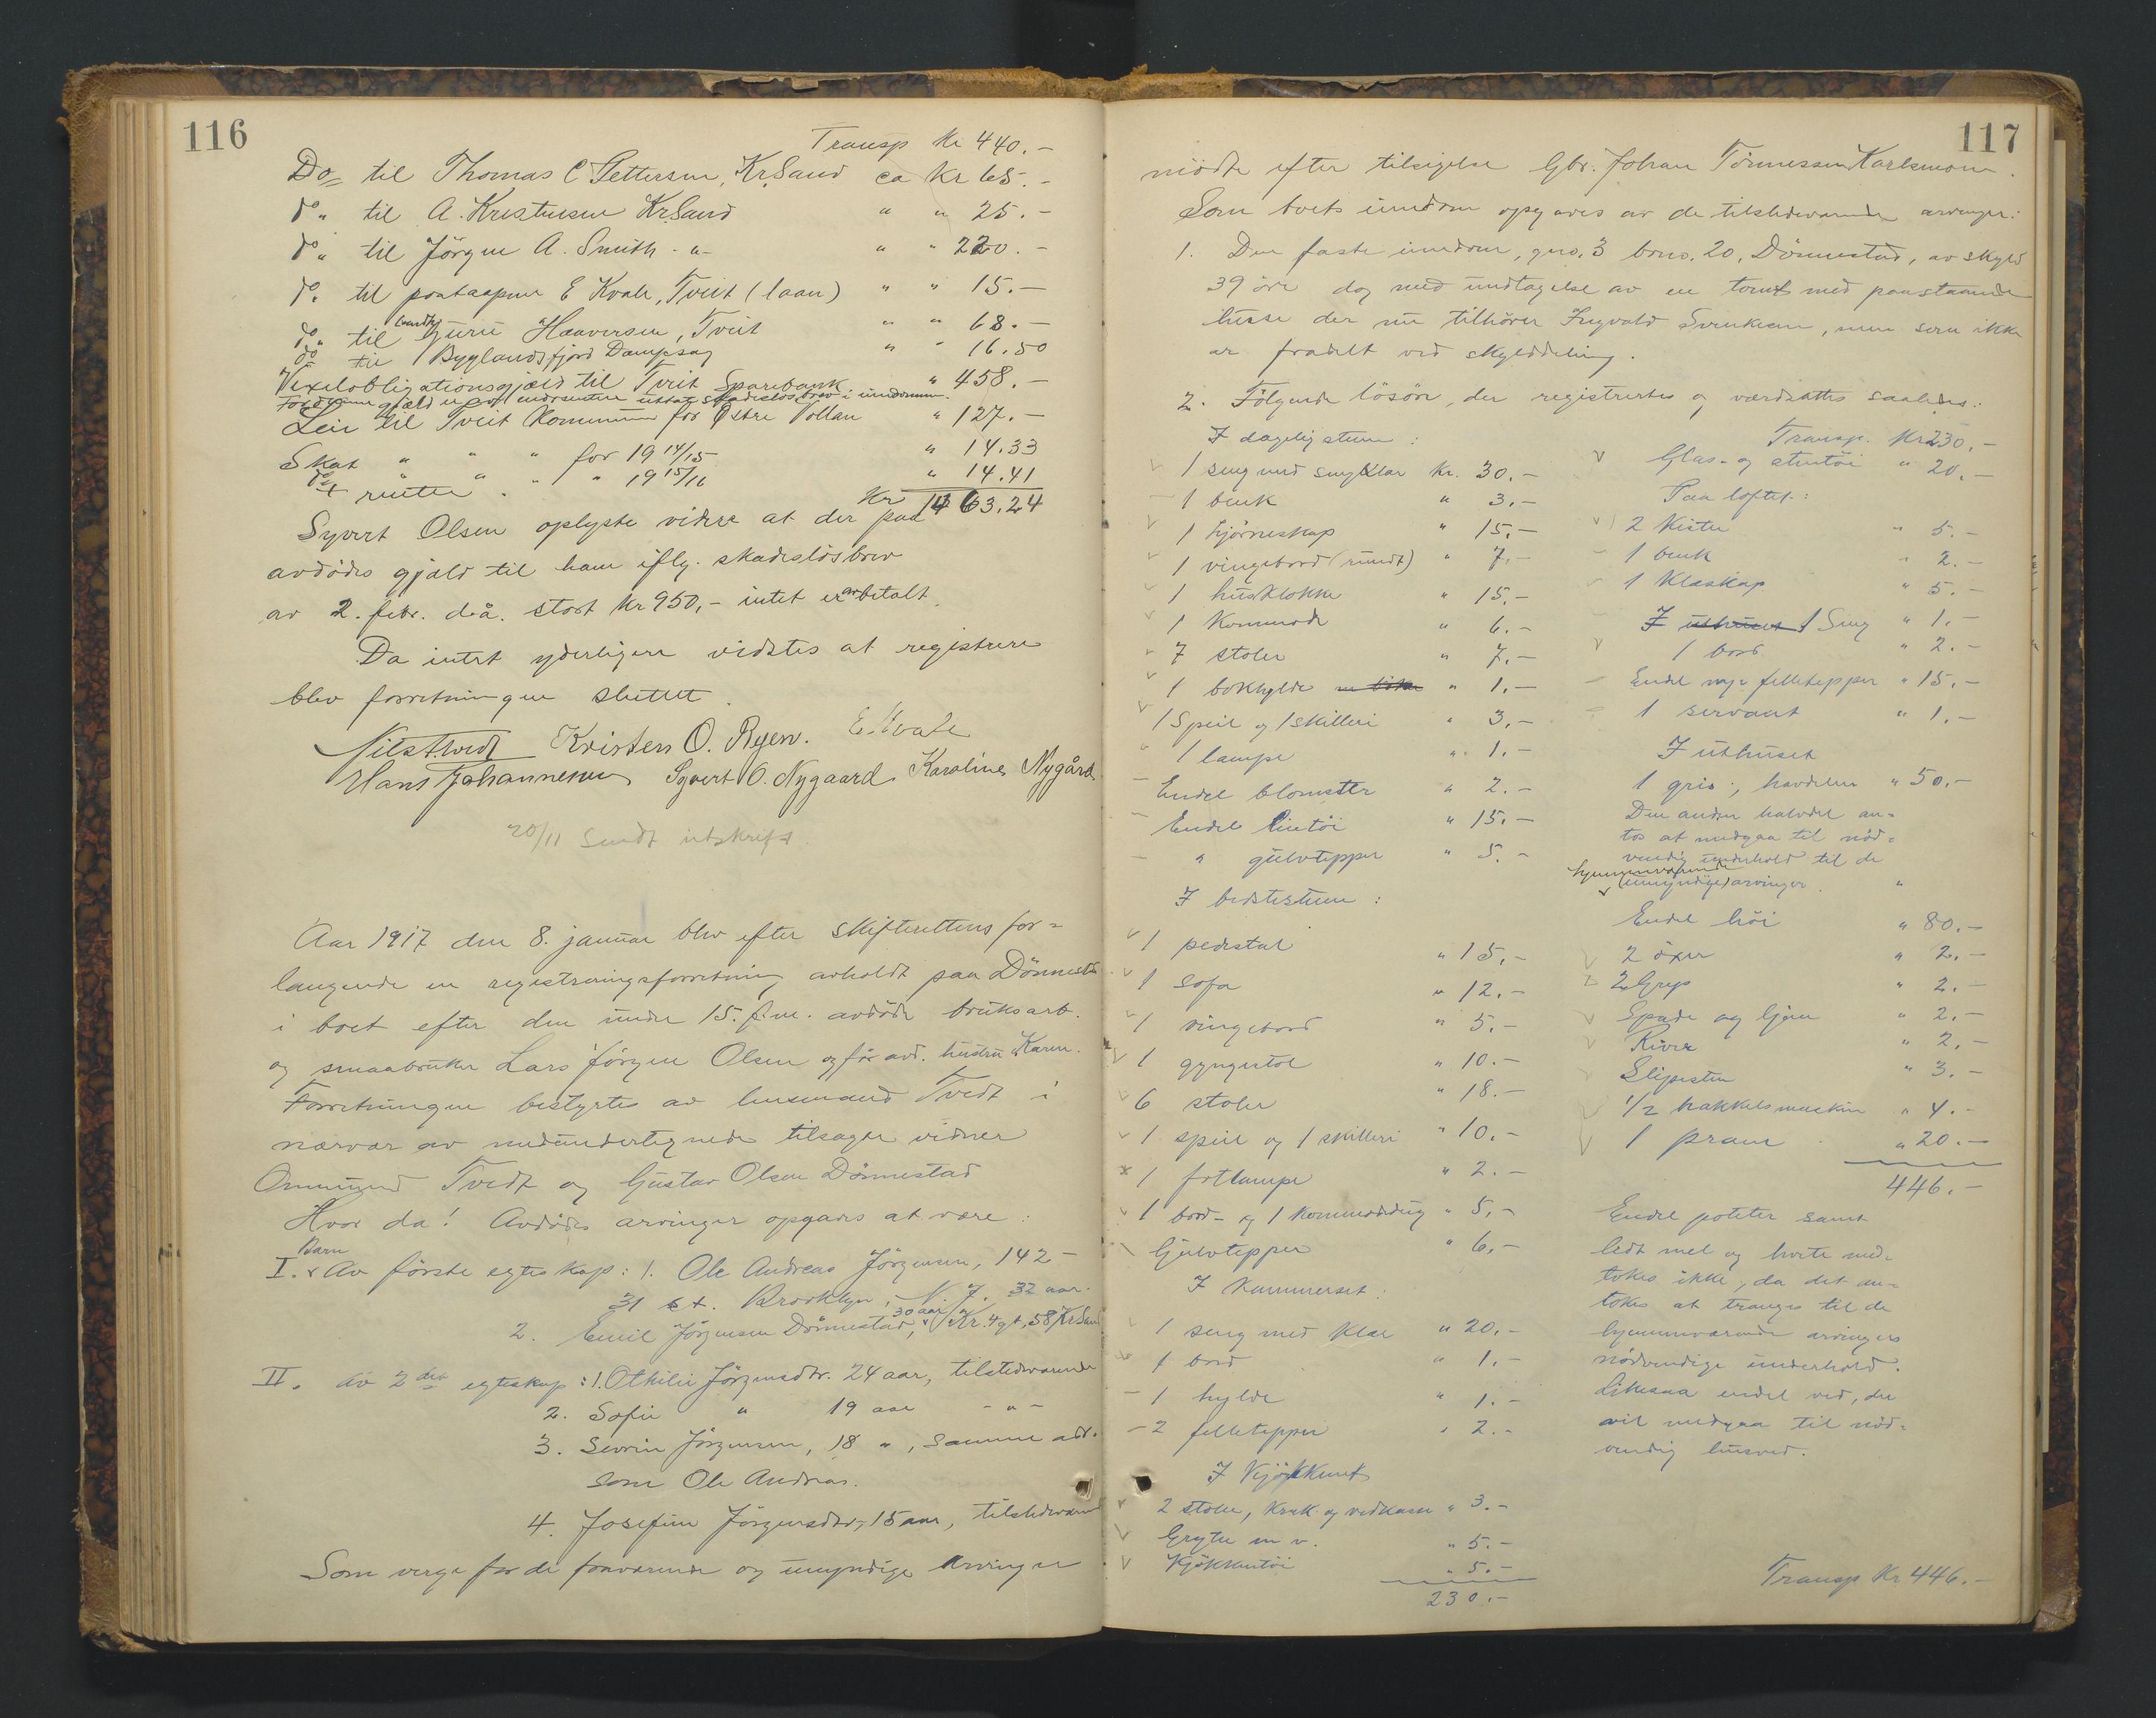 116
Transp Kr 440.-
Do til Thomas C Pettersen, KrSand ca Kr 65.-
do " til A. Kristensen KrSand " " 25.-
do " til Jörgen A. Smith -"- " " 220.-
do. til postaapner E Kvale, Tveit (laan) " " 15.-
do. til landh. Guru Haaversen, Tveit " " 68.-
do til Byglandsfjord Dampsag " " 16.50
Vexelobligationsgjæld til Tveit Sparebank " 458.-
For denne gjæld er av endosenten uttat skadeslösbrev i eiendommen.
Leie til Tveit Kommune for Östre Vollan " 127.-
Skat " " " for 1914/15 " 14.33
do + renter " " " 1915/16 " 14.41
Kr 1463.24
Syvert Olsen oplyste videre at der paa
avdödes gjæld til ham iflg. skadeslösbrev
av 2. febr. d.å. stort kr 950,- intet er avbetalt.
Da intet yderligere vidstes at registrere
blev forretningen sluttet.
Nils Tvedt Kristen O. Ryen. E. Kvale
Hans Johannesen Syvert O. Nygaard Karoline Nygård
20/11 Sendt utskrift.
Aar 1917 den 8. januar blev efter skifterettens for=
langende en registreringsforretning avholdt paa Dönnestad
i boet efter den under 15. f.m. avdöde bruksarb.
og smaabruker Lars Jörgen Olsen og för avd. hustru Karen.
Forretningen bestyrtes av lensmand Tvedt i
nærvær av medundertegnede tilsagte vidner
Ommund Tvedt og Gustav Olsen Dönnestad
Hvor da! Avdödes arvinger opgaves at være:
I. Barn Av förste egteskap: 1. Ole Andreas Jörgensen, 142 -
31 st. Brooklyn, N. J. 32 aar.
2. Emil Jörgensen Dönnestad, 30 aar, Kr. 4 gt, 58 KrSand
II. Av 2det egteskap: 1. Othilie Jörgensdtr. 24 aar, tilstedeværende
2. Sofie " 19 aar - " -
3. Severin Jörgensen, 18 ", samme adr.
som Ole Andreas.
4. Josefine Jörgensdtr, 15 aar, tilstedeværende
Som verge for de fraværende og umyndige arvinger
117
mödte efter tilsigelse Gbr. Johan Tönnessen Karlsmoen.
Som boets eiendom opgaves av de tilstedeværende arvinger:
1. Den faste eiendom, gno. 3 brno. 20, Dönnestad, av skyld
39 öre dog med undtagelse av en tomt med paastaaende
husse der nu tilhörer Ingvald Svenksen, men som ikke
er fradelt ved skylddeling.
2. Fölgende lösöre, der registrertes og værdsattes saaledes:
I dagligstuen:
1 seng med sengklær kr. 30.-
1 bænk " 3.-
1 hjörneskap " 15.-
1 vingebord (rundt) " 7.-
1 husklokke " 15.-
1 Kommode " 6.-
7 stoler " 7.-
1 bokhylde m bøker " 1.-
1 Speil og 1 skilleri " 3.-
1 lampe " 1.-
Endel blomster " 2.-
Endel lintöi " 15.-
" gulvtepper " 5.-
I bedstestuen:
1 pedestal " 15,-
1 sofa " 12.-
1 vingebord " 5.-
1 gyngestol " 10.-
6 stoler " 18.-
1 speil og 1 skilleri " 10.-
1 fotlampe " 2.-
1 bord- og 1 kommodedug " 5,-
Gulvtepper " 6.-
I Kammerset:
1 seng med klær " 20,-
1 bord " 1.-
1 hylde " 1.-
2 felletepper " 2.-
I Kjökkenet
2 stoler, krak og vedkasse " 3.-
Gryter m v. " 5.-
Kjökkentöi " 5.-
230.-
Transp. Kr 230,-
Glas- og stentöi " 20.-
Paa loftet:
2 Kister " 5.-
1 benk " 2.-
1 Klæskap " 5.-
I uthuset 1 Seng " 1.-
1 bord " 2.-
Endel nye felletepper " 15,-
1 servant " 1.-
I uthuset
1 gris, halvdelen " 50,-
Den anden halvdel an=
tos at medgaa til nöd=
vendig underhold til de
hjemmeværende
(umyndige) arvinger. "
Endel höi " 80.-
2 öxer " 2.-
2 Grep " 2.-
Spade og ljom " 2.-
River " 2,-
Slipesten " 3.-
1/2 hakkelsmaskin " 4.-
1 pram " 20.-
446.-
Endel poteter samt
lidt mel og hvete med=
tokes ikke, da det an=
tokes at trænges til de
hjemmværende arvingers
nödvendige underhold.
Likesaa endel ved, der
vil medgaa til nöd=
vendig husved.
Transp Kr 446.-